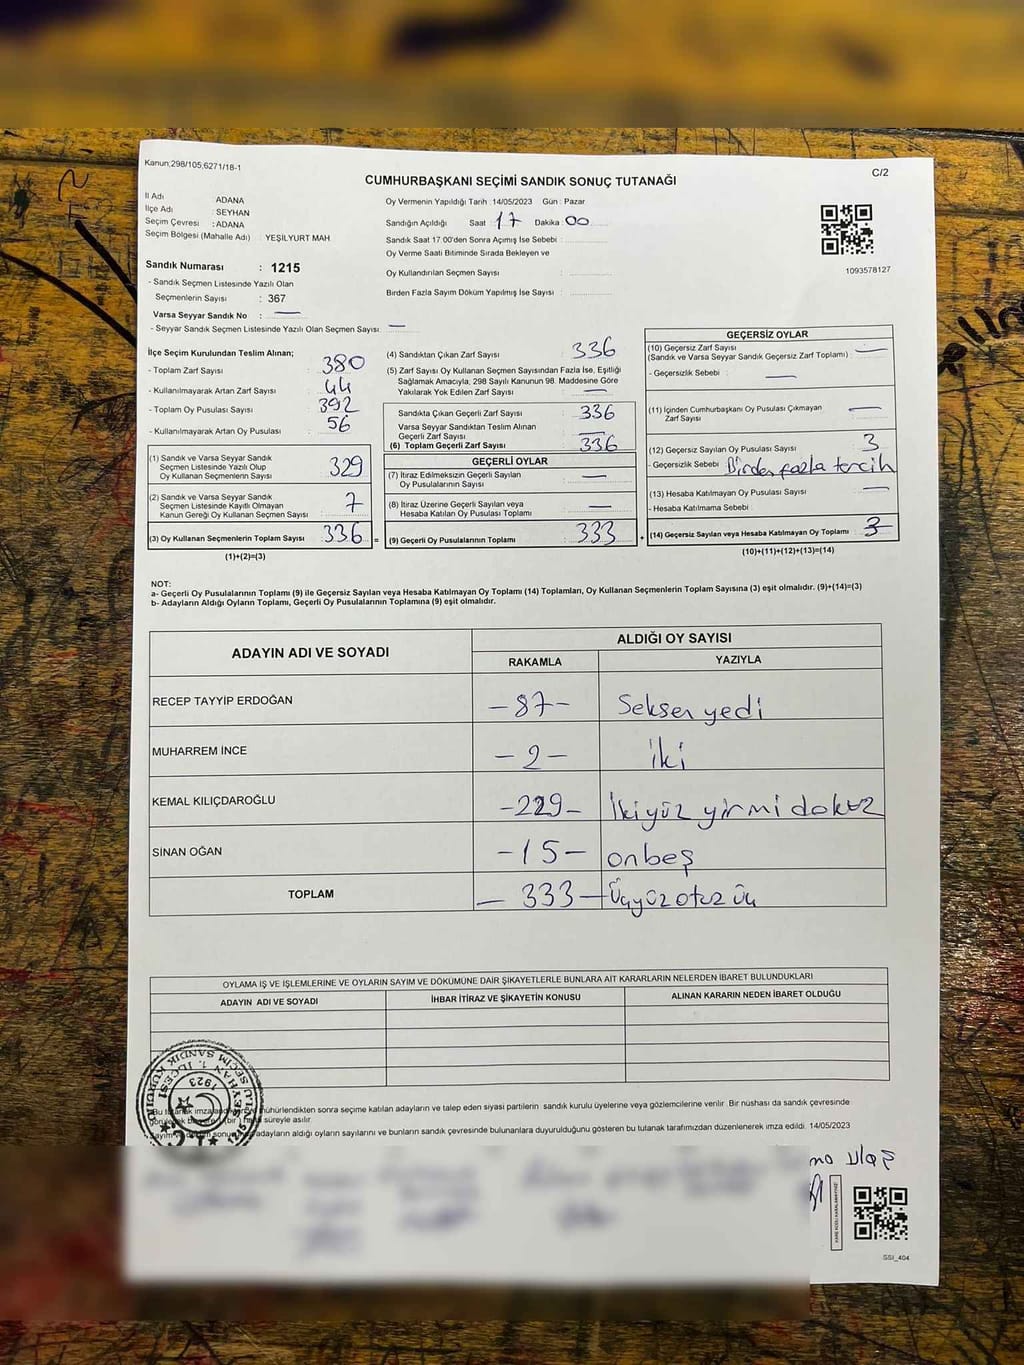 Kanun;298/105,6271/18-1
C/2
CUMHURBAŞKANI SEÇİMİ SANDIK SONUÇ TUTANAĞI
İl Adı : ADANA
İlçe Adı : SEYHAN
Seçim Çevresi : ADANA
Seçim Bölgesi (Mahalle Adı) : YEŞİLYURT MAH
Sandık Numarası : 1215
- Sandık Seçmen Listesinde Yazılı Olan
Seçmenlerin Sayısı : 367
Varsa Seyyar Sandık No : —
- Seyyar Sandık Seçmen Listesinde Yazılı Olan Seçmen Sayısı: —
Oy Vermenin Yapıldığı Tarih : 14/05/2023 Gün : Pazar
Sandığın Açıldığı Saat : 17 Dakika : 00
Sandık Saat 17.00'den Sonra Açımış İse Sebebi :
Oy Verme Saati Bitiminde Sırada Bekleyen ve
Oy Kullandırılan Seçmen Sayısı :
Birden Fazla Sayım Döküm Yapılmış İse Sayısı :
1093578127
İlçe Seçim Kurulundan Teslim Alınan;
- Toplam Zarf Sayısı : 380
- Kullanılmayarak Artan Zarf Sayısı : 44
- Toplam Oy Pusulası Sayısı : 392
- Kullanılmayarak Artan Oy Pusulası : 56
(1) Sandık ve Varsa Seyyar Sandık
Seçmen Listesinde Yazılı Olup
Oy Kullanan Seçmenlerin Sayısı : 329
(2) Sandık ve Varsa Seyyar Sandık
Seçmen Listesinde Kayıtlı Olmayan
Kanun Gereği Oy Kullanan Seçmen Sayısı : 7
(3) Oy Kullanan Seçmenlerin Toplam Sayısı : 336 =
(1)+(2)=(3)
(4) Sandıktan Çıkan Zarf Sayısı : 336
(5) Zarf Sayısı Oy Kullanan Seçmen Sayısından Fazla İse, Eşitliği
Sağlamak Amacıyla, 298 Sayılı Kanunun 98. Maddesine Göre
Yakılarak Yok Edilen Zarf Sayısı : —
Sandıkta Çıkan Geçerli Zarf Sayısı : 336
Varsa Seyyar Sandıktan Teslim Alınan
Geçerli Zarf Sayısı : —
(6) Toplam Geçerli Zarf Sayısı : 336
GEÇERLİ OYLAR
(7) İtiraz Edilmeksizin Geçerli Sayılan
Oy Pusulalarının Sayısı : —
(8) İtiraz Üzerine Geçerli Sayılan veya
Hesaba Katılan Oy Pusulası Toplamı : —
(9) Geçerli Oy Pusulalarının Toplamı : 333 +
GEÇERSİZ OYLAR
(10) Geçersiz Zarf Sayısı
(Sandık ve Varsa Seyyar Sandık Geçersiz Zarf Toplamı) : —
- Geçersizlik Sebebi : —
(11) İçinden Cumhurbaşkanı Oy Pusulası Çıkmayan
Zarf Sayısı : —
(12) Geçersiz Sayılan Oy Pusulası Sayısı : 3
- Geçersizlik Sebebi : Birden fazla tercih
(13) Hesaba Katılmayan Oy Pusulası Sayısı : —
- Hesaba Katılmama Sebebi :
(14) Geçersiz Sayılan veya Hesaba Katılmayan Oy Toplamı : 3
(10)+(11)+(12)+(13)=(14)
NOT:
a- Geçerli Oy Pusulalarının Toplamı (9) ile Geçersiz Sayılan veya Hesaba Katılmayan Oy Toplamı (14) Toplamları, Oy Kullanan Seçmenlerin Toplam Sayısına (3) eşit olmalıdır. (9)+(14)=(3)
b- Adayların Aldığı Oyların Toplamı, Geçerli Oy Pusulalarının Toplamına (9) eşit olmalıdır.
ADAYIN ADI VE SOYADI
ALDIĞI OY SAYISI
RAKAMLA YAZIYLA
RECEP TAYYİP ERDOĞAN -87- Seksen yedi
MUHARREM İNCE -2- iki
KEMAL KILIÇDAROĞLU -229- İkiyüz yirmi dokuz
SİNAN OĞAN -15- onbeş
TOPLAM - 333 - Üçyüz otuz üç
OYLAMA İŞ VE İŞLEMLERİNE VE OYLARIN SAYIM VE DÖKÜMÜNE DAİR ŞİKAYETLERLE BUNLARA AİT KARARLARIN NELERDEN İBARET BULUNDUKLARI
ADAYIN ADI VE SOYADI İHBAR İTİRAZ VE ŞİKAYETİN KONUSU ALINAN KARARIN NEDEN İBARET OLDUĞU
SEYHAN 1. İLÇESİ
SEÇİM SANDIK KURULU
1923
T.C.
Bu tutanak imzalandıktan ve mühürlendikten sonra seçime katılan adayların ve talep eden siyasi partilerin sandık kurulu üyelerine veya gözlemcilerine verilir. Bir nüshası da sandık çevresinde
süreyle asılır.
adayların aldığı oyların sayılarını ve bunların sandık çevresinde bulunanlara duyurulduğunu gösteren bu tutanak tarafımızdan düzenlenerek imza edildi. 14/05/2023
SSI_404